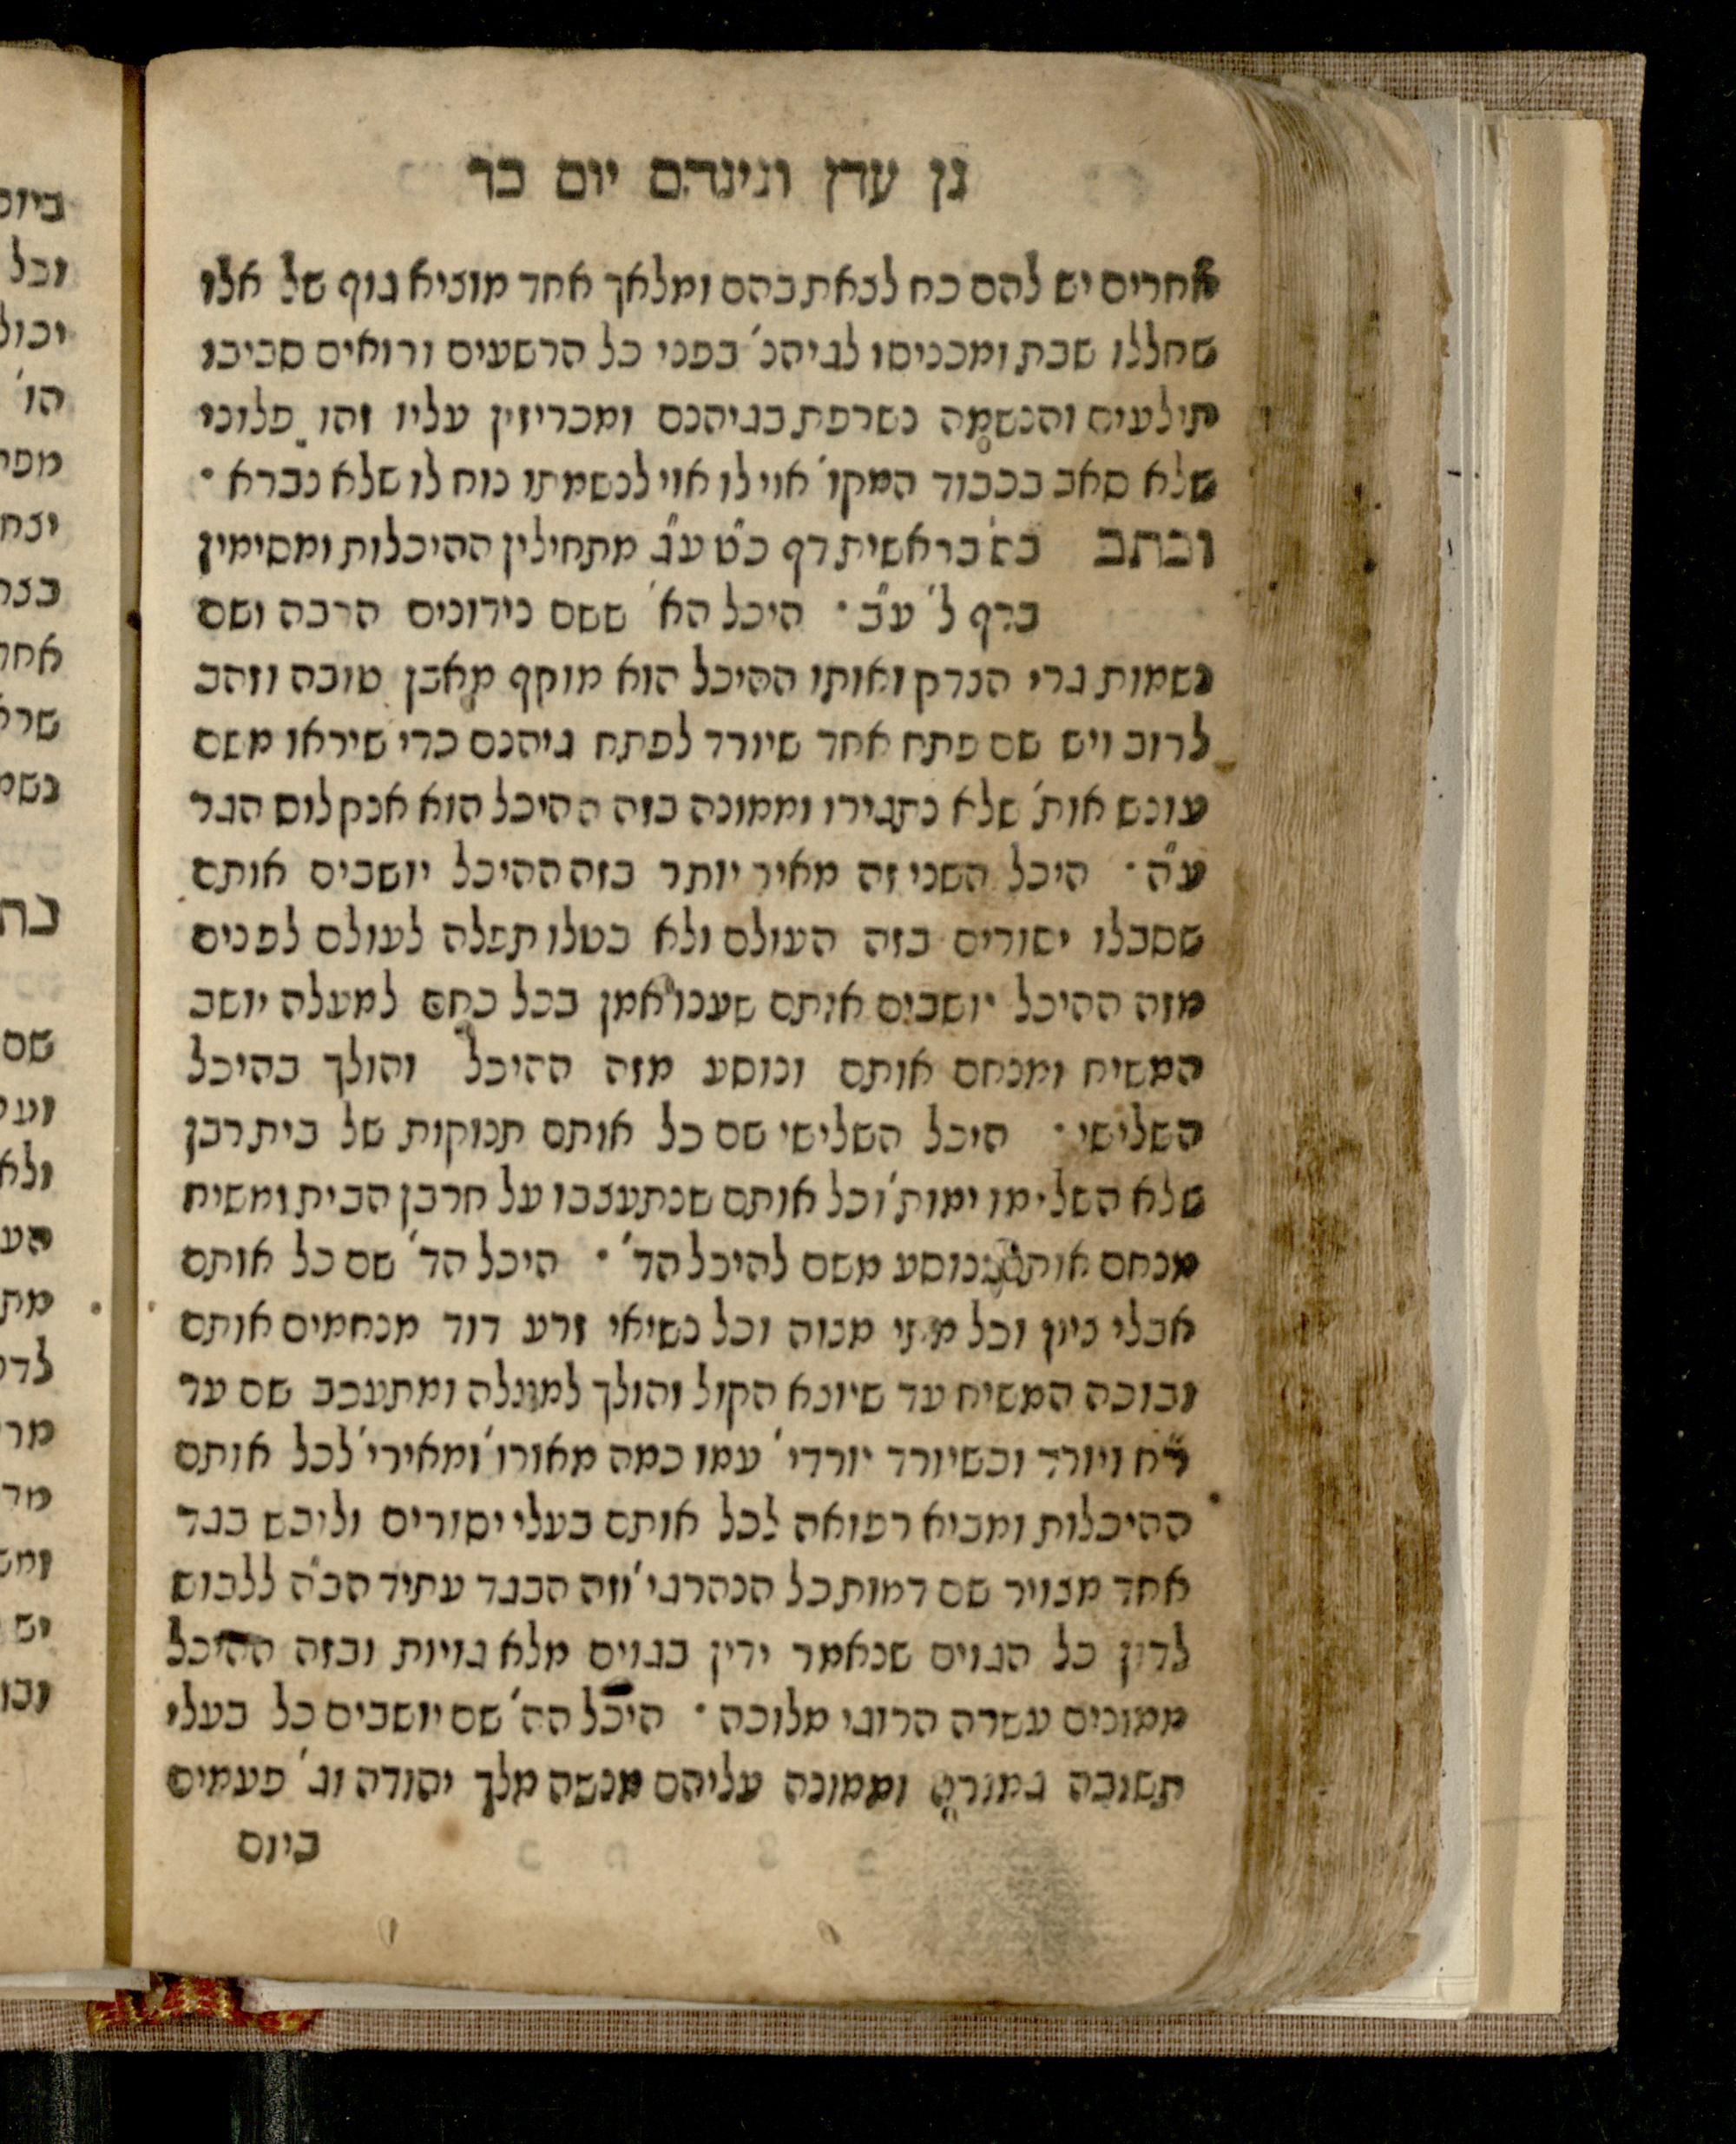 גן עדן וגיגהם יום כד
אחרים יש להם כח לצאת בהם ומלאך אחד מוציא גוף של אלו
שחללו שבת ומכניסו לגיהנ׳ בפני כל הרשעים ורואים סביבו
תילעים והנשמה נשרפת בגיהנם ומכריזין עליו זהו פלוני
שלא סאב בכבוד המקו׳ אוי לו אוי לנשמתו נוח לו שלא נברא ·
וכתב בס׳ בראשית דף כ״ט ע״ג מתחילין ההיכלות ומסימין
בדף ל׳ ע״ב · היכל הא׳ ששם נידונים הרבה ושם
נשמות גרי הצדק ואותו ההיכל הוא מוקף מאבן טובה וזהב
לרוב ויש שם פתח אחד שיורד לפתח גיהנם כדי שיראו משם
עונש אות׳ שלא נתגירו וממונה בזה ההיכל הוא אנקלוס הגר
ע״ה · היכל השני זה מאיר יותר בזה ההיכל יושבים אותם
שסבלו יסורים בזה העולם ולא בטלו תפלה לעולם לפנים
מזה ההיכל יושבים אותם שענו אמן בכל כחם למעלה יושב
המשיח ומנחם אותם ונוסע מזה ההיכל והולך בהיכל
השלישי · היכל השלישי שם כל אותם תנוקות של בית רבן
שלא השלימו ימות׳ וכל אותם שנתעצבו על חרבן הבית ומשיח
מנחם אותם ונוסע משם להיכל הד׳ · היכל הד׳ שם כל אותם
אבלי ציון וכל מתי מצוה וכל נשיאי זרע דוד מנחמים אותם
ובוכה המשיח עד שיוצא הקול והולך למעלה ומתעכב שם עד
ר״ח ויורד וכשיורד יורדי׳ עמו כמה מאורו׳ ומאירי׳ לכל אותם
ההיכלות ומביא רפואה לכל אותם בעלי יסורים ולובש בגד
אחד מצויר שם דמות כל הנהרגי׳ וזה הבגד עתיד הב״ה ללבוש
לדון כל הגוים שנאמר ידין בגוים מלא גויות ובזה ההיכל
ממונים עשרה הרוגי מלוכה · היכל הה׳ שם יושבים כל בעלי
תשובה גמורה וממונה עליהם מנשה מלך יהודה וג׳ פעמים
ביום